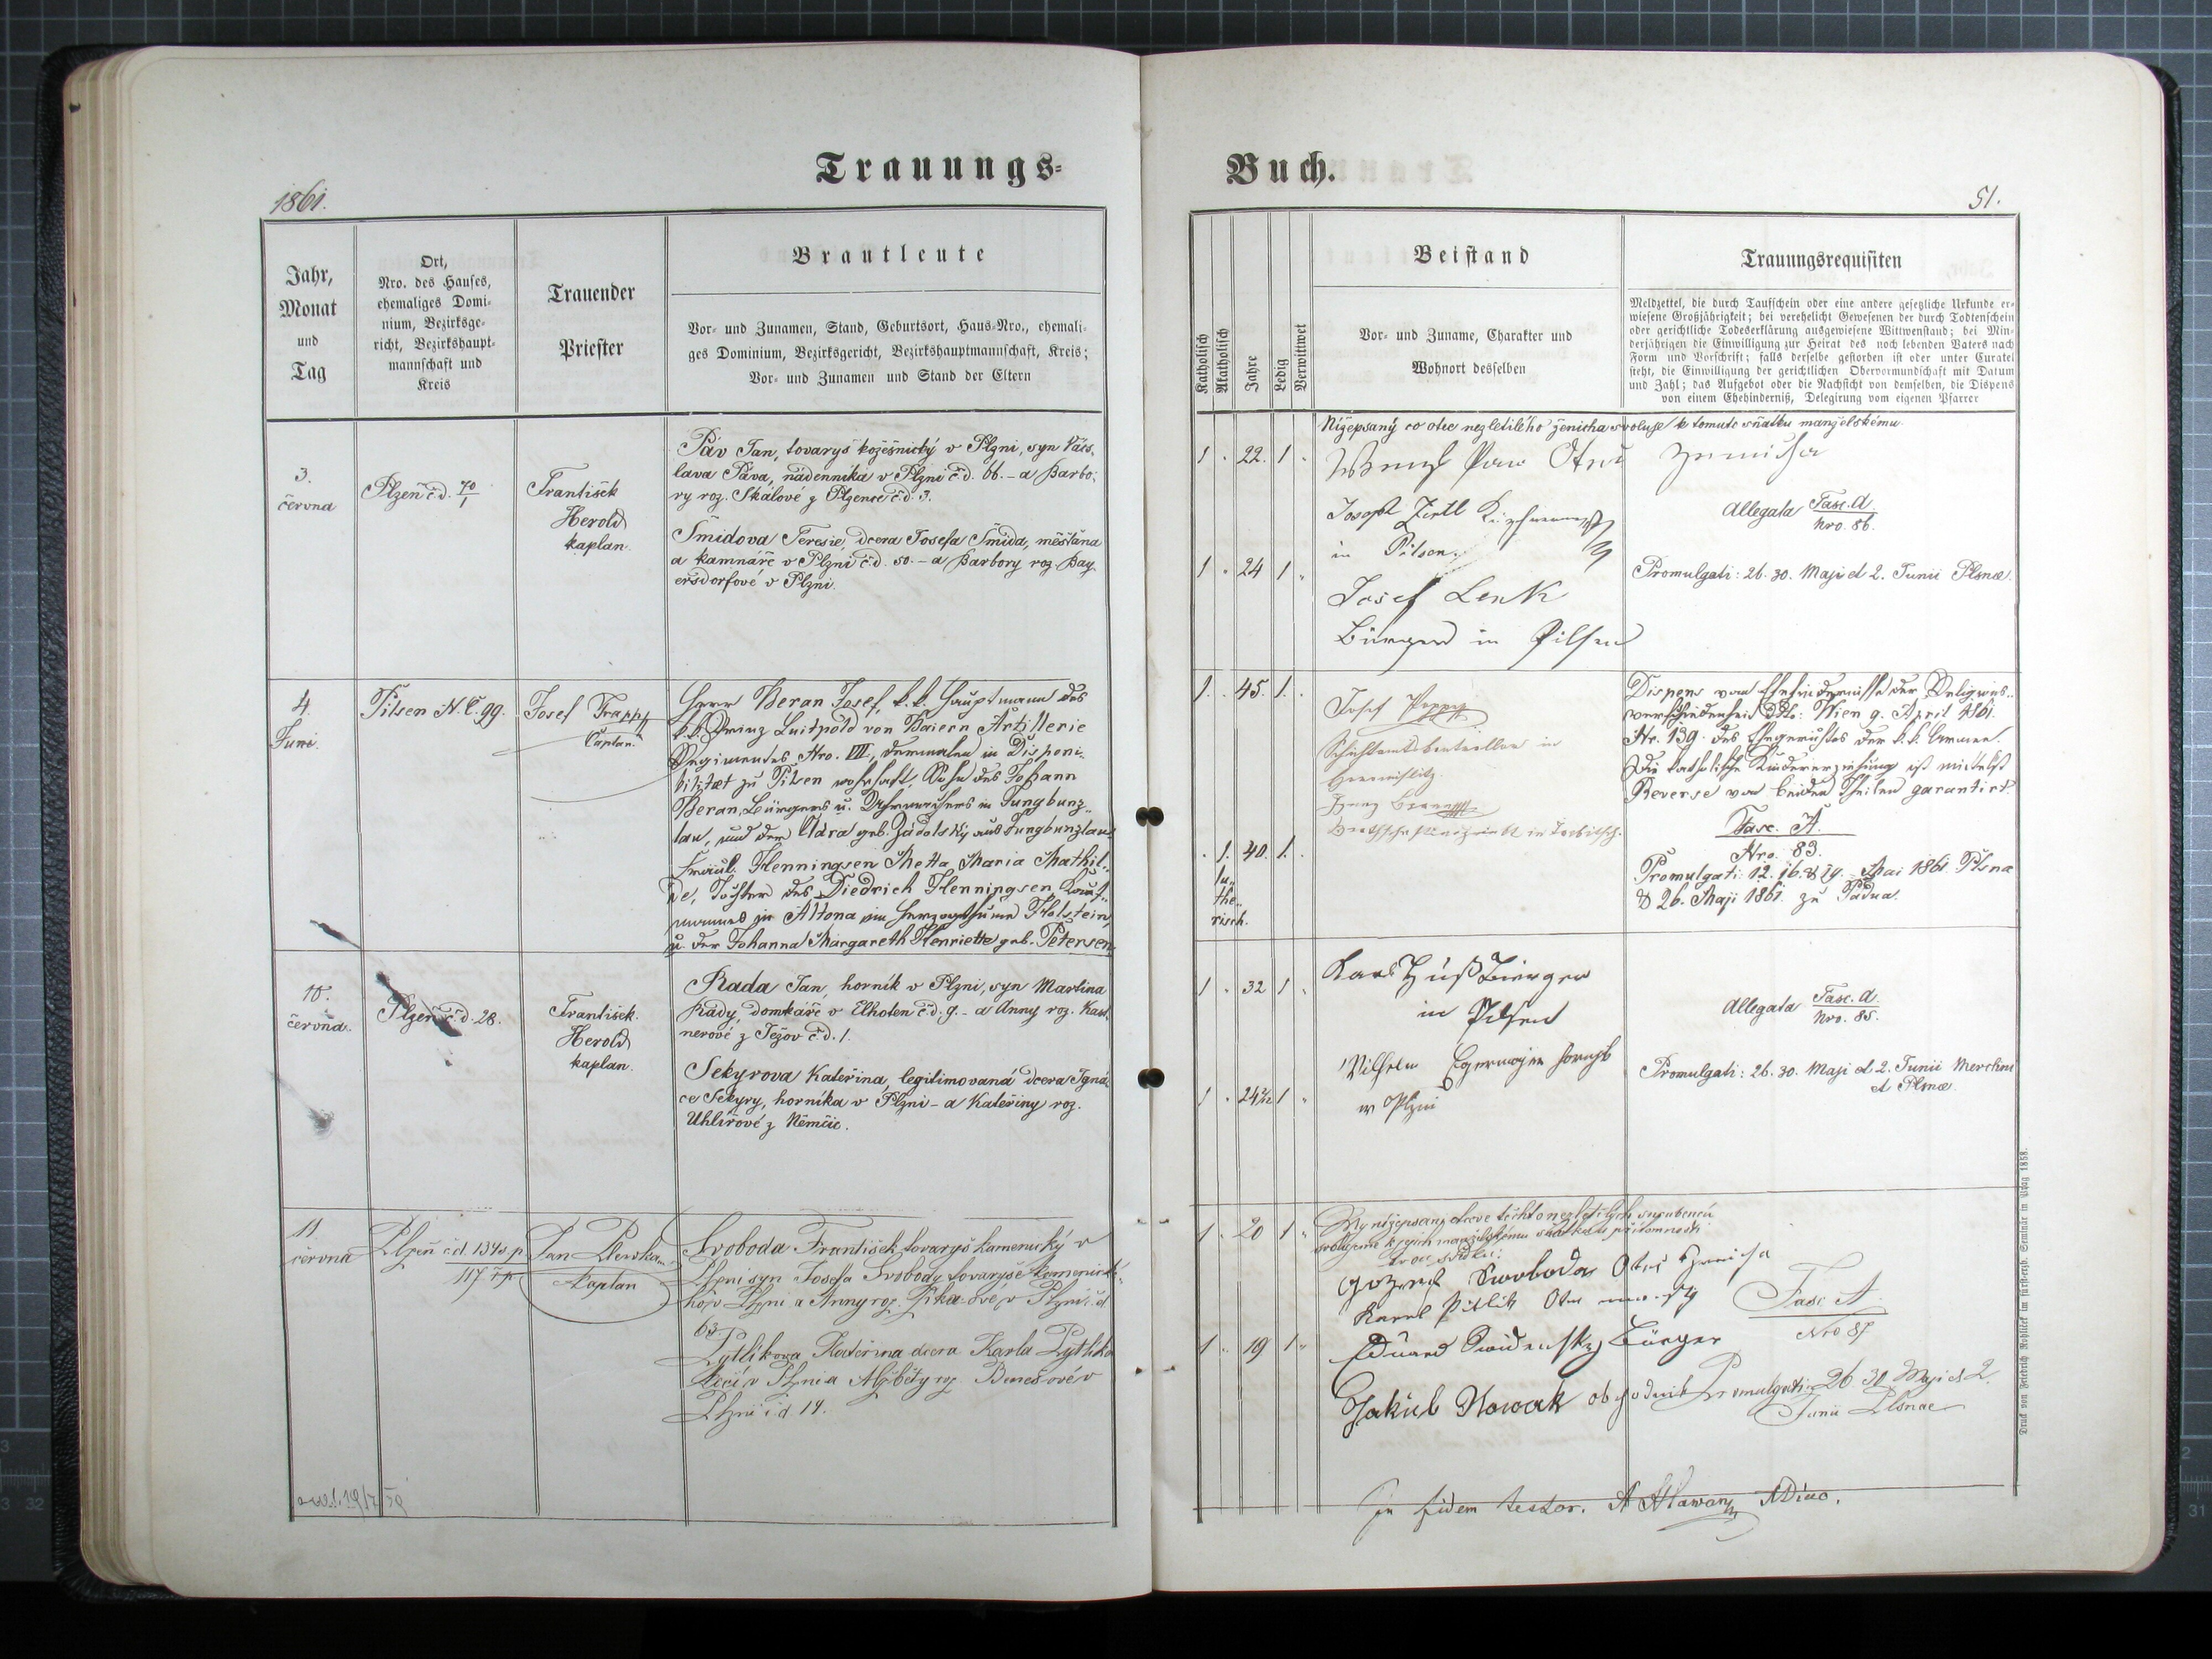 Trauungs-
1861.
Jahr,
Monat
und
Tag
Ort,
Nro. des Hauses,
ehemaliges Domi-
nium, Bezirksge-
richt, Bezirkshaupt-
mannschaft und
Kreis
Trauender
Priester
Brautleute
Vor- und Zunamen, Stand, Geburtsort, Haus-Nro., ehemali-
ges Dominium, Bezirksgericht, Bezirkshauptmannschaft, Kreis;
Vor- und Zunamen und Stand der Eltern
3.
června
Plzeň č.d. 70/1
František
Herold
kaplan.
Páv Jan, tovaryš kožešnický v Plzni, syn Václ-
lava Páva, nádenníka v Plzni č.d. 66. - a Barbo-
ry roz. Skálové z Plzence č.d. 3.
Šmidova Teresie, dcera Josefa Šmida, měštana
a kamnáře v Plzni č.d. 50. - a Barbory roz. Bay-
ersdorfové v Plzni.
4
Juni.
Pilsen N.C. 99.
Josef Trapp
Caplan.
Herr Beran Josef, k.k. Hauptmann des
k.k. Prinz Luitpold von Baiern Artillerie
Regimentes Nro. VII, dermalen in Disponi-
bilitæt zu Pilsen wohnhaft, Sohn des Johann
Beran, Bürgers u. in Jungbunz-
lau, und der Clara geb. Zádolsky aus Jungbunzlau
Fräul. Henningsen Metta Maria Mathil-
de, Tochter des Diedrich Henningsen Kauf-
mannes in Altona im Herzogthume Holstein,
u. der Johanna Margareth Henriette geb. Petersen.
10.
června.
Plzeň č.d. 28.
František
Herold
kaplan.
Rada Jan, horník v Plzni, syn Martina
Rady, domkáře v Elhoten č.d. 9. - a Anny roz. Kast-
nerové z Ježov č.d. 1.
Sekyrova Kateřina, legitimovaná dcera Igná-
ce Sekyry, horníka v Plzni - a Kateřiny roz.
Uhlířové z Němčic.
11
června
Plzeň č.d. 134 s.p.
117 ř.p.
Jan
kaplan
Svoboda František tovaryš kamenický v
Plzni syn Josefa Svobody tovaryše kamenické-
ho v Plzni a Anny roz. v Plzni č.d.
63
Pytlíkova Kateřina dcera Karla Pytlíka
v Plzni a Alžběty roz. Benešové v
Plzni č.d. 14.
Buch.
51.
Katholisch
Akatholisch
Jahre
Ledig
Verwittwet
Beistand
Vor- und Zuname, Charakter und
Wohnort desselben
Trauungsrequisiten
Meldzettel, die durch Taufschein oder eine andere gesetzliche Urkunde er-
wiesene Großjährigkeit; bei verehelicht Gewesenen der durch Todtenschein
oder gerichtliche Todeserklärung ausgewiesene Wittwenstand; bei Min-
derjährigen die Einwilligung zur Heirat des noch lebenden Vaters nach
Form und Vorschrift; falls derselbe gestorben ist oder unter Curatel
steht, die Einwilligung der gerichtlichen Obervormundschaft mit Datum
und Zahl; das Aufgebot oder die Nachsicht von demselben, die Dispens
von einem Ehehinderniß, Delegirung vom eigenen Pfarrer
Nížepsaný co otec nezletilého ženicha svoluje k tomuto sňatku manželskému.
1 " 22. 1 "
Wenzl Paw Otec ženicha
Joseph Zertl
in Pilsen.
Allegata Fasc. A. Nro. 86.
1 " 24 1 "
Josef Lenk
Bürger in Pilsen
Promulgati: 26. 30. Maji et 2. Junii Plsnæ.
1. . 45. 1. .
Josef
in
in
Dispens vom Ehehindernisse der Religions-
verschiedenheit Dto: Wien 9. April 1861.
Nr. 139. des Ehegerichtes der k.k. Armee.
Die katholische Kindererziehung ist mittelst
Reverse von beiden Theilen garantirt.
Fasc. A.
Nro. 83.
Promulgati: 12. 16. & 19. Mai 1861. Plsna
& 26. Maji 1861. zu Padua.
. 1. 40. 1. .
lu-
the-
risch.
1 " 32 1 "
Karl Huß Bürger
in Pilsen
Allegata Fasc. A. Nro. 85.
1 " 24 1 "
Vilhelm
w Plzni
Promulgati: 26. 30. Maji et 2. Junii Merclini
et Plsnæ.
1 " 20 1 "
My nížepsaní otcové těchto nezletilých snoubenců
svolujeme k jejich manželskému sňatku u přítomnosti
dvou svědků:
Swoboda Otec ženicha
Karel Pitlik Otec
Fasc. A.
Nro 87
1 " 19 1 "
Eduard Bürger
Jakub Nowak obchodnik
Promulgati: 26 30 Maji et 2.
Junii Plsnae
In fidem testor. A Hlawan
Druck von Friedrich Rohliček im fürsterzb. Seminär in Prag 1858.